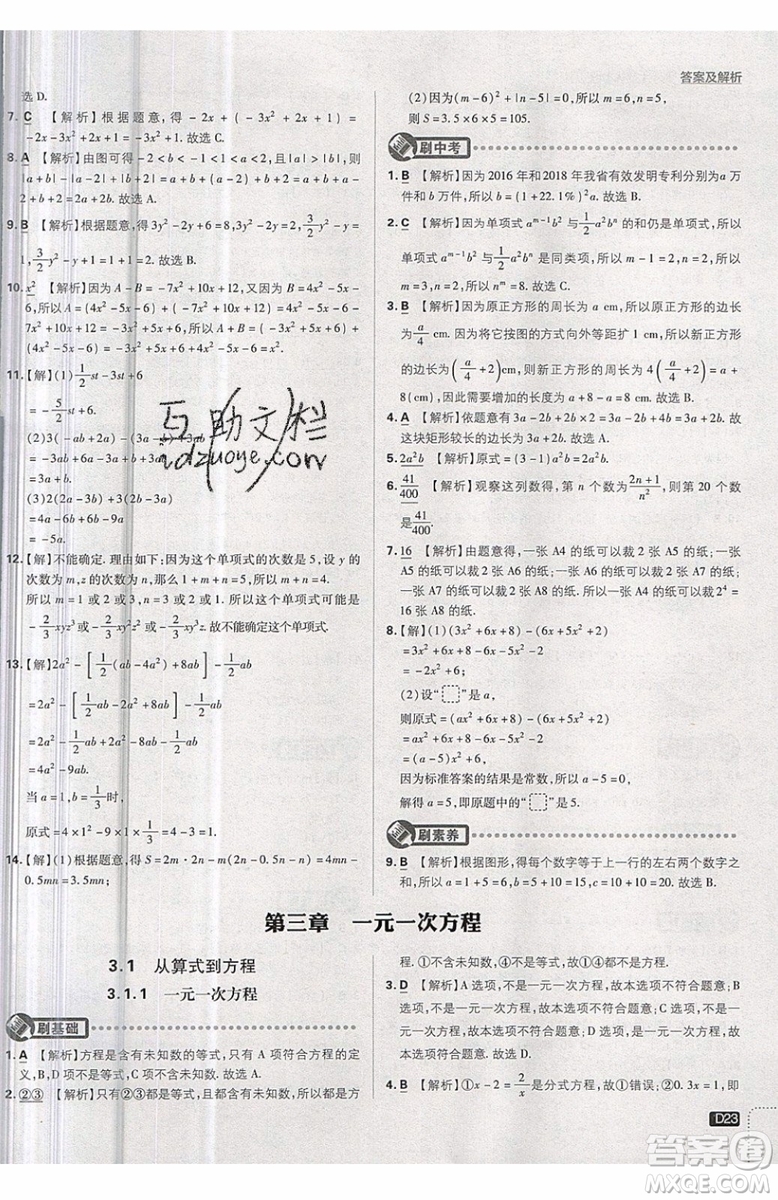 答案及解析
选 D.
7. C 【解析】根据题意,得 -2x+(-3x²+2x)+(-x²)=
-2x-3x²+2x-x²=-4x². 故选 C.
8. A 【解析】由图可得 -2<b<-1<1<a<2, 则 |a+b|-
|a-2|+|b+2|=a+b+(a-2)+(b+2)=a+b+a-
2+b+2=2a+2b. 故选 A.
9. B 【解析】根据题意,得 3y²-2y+6=8, 3y²-2y=2, 3/2 y²-y=
1, 则 3/2 y²-y+1=1+1=2. 故选 B.
10. x² 【解析】因为 A-B=-7x²+10x+12, 又因为 B=4x²-5x-
6, 所以 A=(4x²-5x-6)+(-7x²+10x+12)=4x²-5x-
6-7x²+10x+12=-3x²+5x+6, 所以 A+B=(-3x²+
5x+6)+(4x²-5x-6)=x².
11. 【解】(1) 1/2 st-3st+6
= -5/2 st+6.
=4a-5b.
(3)2(2a-3b)+3(2b-3a)
=4a-6b+6b-9a
=-5a.
12. 【解】不能确定. 理由如下:因为这个单项式的次数是 5, 设 y 的
次数为 m, z 的次数为 n, 那么 1+m+n=5, 所以 m+n=4.
所以 m=1 或 2 或 3, n=3 或 2 或 1, 所以这个单项式可能是
-2/3 xyz³ 或 -2/3 xy²z² 或 -2/3 xy³z. 故不能确定这个单项式.
13. 【解】2a²-[1/2(ab-4a²)+8ab]-1/2 ab
=2a²-[1/2 ab-2a²+8ab]-1/2 ab
=2a²-1/2 ab+2a²-8ab-1/2 ab
=4a²-9ab.
当 a=1, b=1/3 时,
原式=4×1²-9×1×1/3=4-3=1.
14. 【解】(1)根据题意,得 S=2m·2n-m(2n-n-0.5n)=4mn-
0.5mn=3.5mn;
(2)因为(m-6)²+|n-5|=0, 所以 m=6, n=5,
则 S=3.5×6×5=105.
刷中考
1. B 【解析】因为 2016 年和 2018 年我省有效发明专利分别为 a 万
件和 b 万件, 所以 b=(1+22.1%)²a. 故选 B.
2. C 【解析】因为单项式 aᵐ⁻¹b² 与 1/2 a²bⁿ 的和仍是单项式, 所以
单项式 aᵐ⁻¹b² 与 1/2 a²bⁿ 是同类项, 所以 m-1=2, n=2, 所以
m=3, n=2, 所以 nᵐ=8. 故选 C.
3. B 【解析】因为原正方形的周长为 a cm, 所以原正方形的边长
为 a/4 cm. 因为将它按图的方式向外等距扩 1 cm, 所以新正方形
的边长为(a/4+2)cm, 则新正方形的周长为 4(a/4+2)=a+
8(cm), 因此需要增加的长度为 a+8-a=8(cm). 故选 B.
4. A 【解析】依题意有 3a-2b+2b×2=3a-2b+4b=3a+2b. 故
这块矩形较长的边长为 3a+2b. 故选 A.
5. 2a²b 【解析】原式=(3-1)a²b=2a²b.
6. 41/400 【解析】观察这列数得, 第 n 个数为 (2n+1)/n², 则第 20 个数
是 41/400.
7. 16 【解析】由题意得, 一张 A4 的纸可以裁 2 张 A5 的纸;一张
A5 的纸可以裁 2 张 A6 的纸;一张 A6 的纸可以裁 2 张 A7 的
纸;一张 A7 的纸可以裁 2 张 A8 的纸, 所以一张 A4 的纸可以裁 2⁴
=16(张)A8 的纸.
8. 【解】(1)(3x²+6x+8)-(6x+5x²+2)
=3x²+6x+8-6x-5x²-2
=-2x²+6;
(2)设“□”是 a,
则原式=(ax²+6x+8)-(6x+5x²+2)
=ax²+6x+8-6x-5x²-2
=(a-5)x²+6.
因为标准答案的结果是常数, 所以 a-5=0,
解得 a=5, 即原题中的“□”是 5.
刷素养
9. B 【解析】根据图形, 得每个数字等于上一行的左右两个数字之
和, 故选 B.
第三章 一元一次方程
3.1 从算式到方程
3.1.1 一元一次方程
刷基础
1. A 【解析】方程是含有未知数的等式, 只有 A 项符合方程的定
义, B、C、D 不是方程. 故选 A.
2. ②③ 【解析】只有②③都是等式且都含有未知数, 故②③是方
程. ①不含未知数, ④不是等式, 故①④不是方程.
3. D 【解析】A 选项, 不是一元一次方程, 故本选项不符合题意;B
选项, 不是一元一次方程, 故本选项不符合题意;C 选项, 不是一
元一次方程, 故本选项不符合题意;D 选项, 是一元一次方程,
故本选项符合题意. 故选 D.
4. B 【解析】①x-2=2/x 是分式方程, 故①错误;②0.3x=1, 即
D23
互助文栏
idzuoye.com
作业答案
MXQE.COM